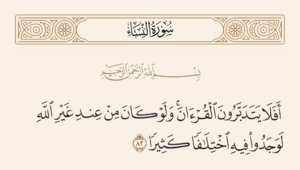 سُورَةُ النِّسَاءِ
بِسْمِ اللَّهِ الرَّحْمَٰنِ الرَّحِيمِ
أَفَلَا يَتَدَبَّرُونَ ٱلْقُرْءَانَۚ وَلَوْ كَانَ مِنْ عِندِ غَيْرِ ٱللَّهِ
لَوَجَدُوا۟ فِيهِ ٱخْتِلَـٰفًا كَثِيرًا ٨٢